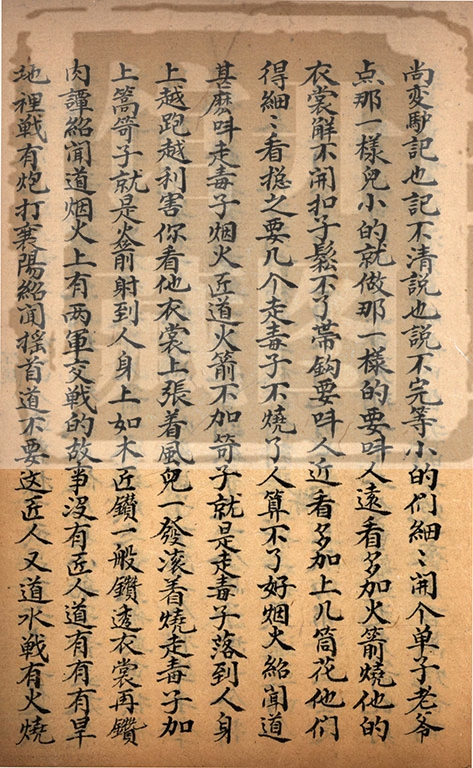 尚变馿記也記不清説也説不完等小的们細〻開个单子老爷
点那一樣兒小的就做那一樣的要呌人逺看多加火箭燒他的
衣裳解不開扣子鬆不了帶鈎要呌人近看多加上几筒花他们
得細〻看揔之要几个走毒子不燒了人算不了好烟火紹闻道
甚麽呌走毒子烟火匠道火箭不加笴子就是走毒子落到人身
上越跑越利害你看他衣裳上張着風兒一發滚着燒走毒子加
上篙笴子就是火箭射到人身上如木匠鑽一般鑽透衣裳再鑽
肉譚紹闻道烟火上有两軍交戦的故事没有匠人道有有有旱
地裡戦有炮打襄陽紹闻揺首道不要这匠人又道水戦有火燒